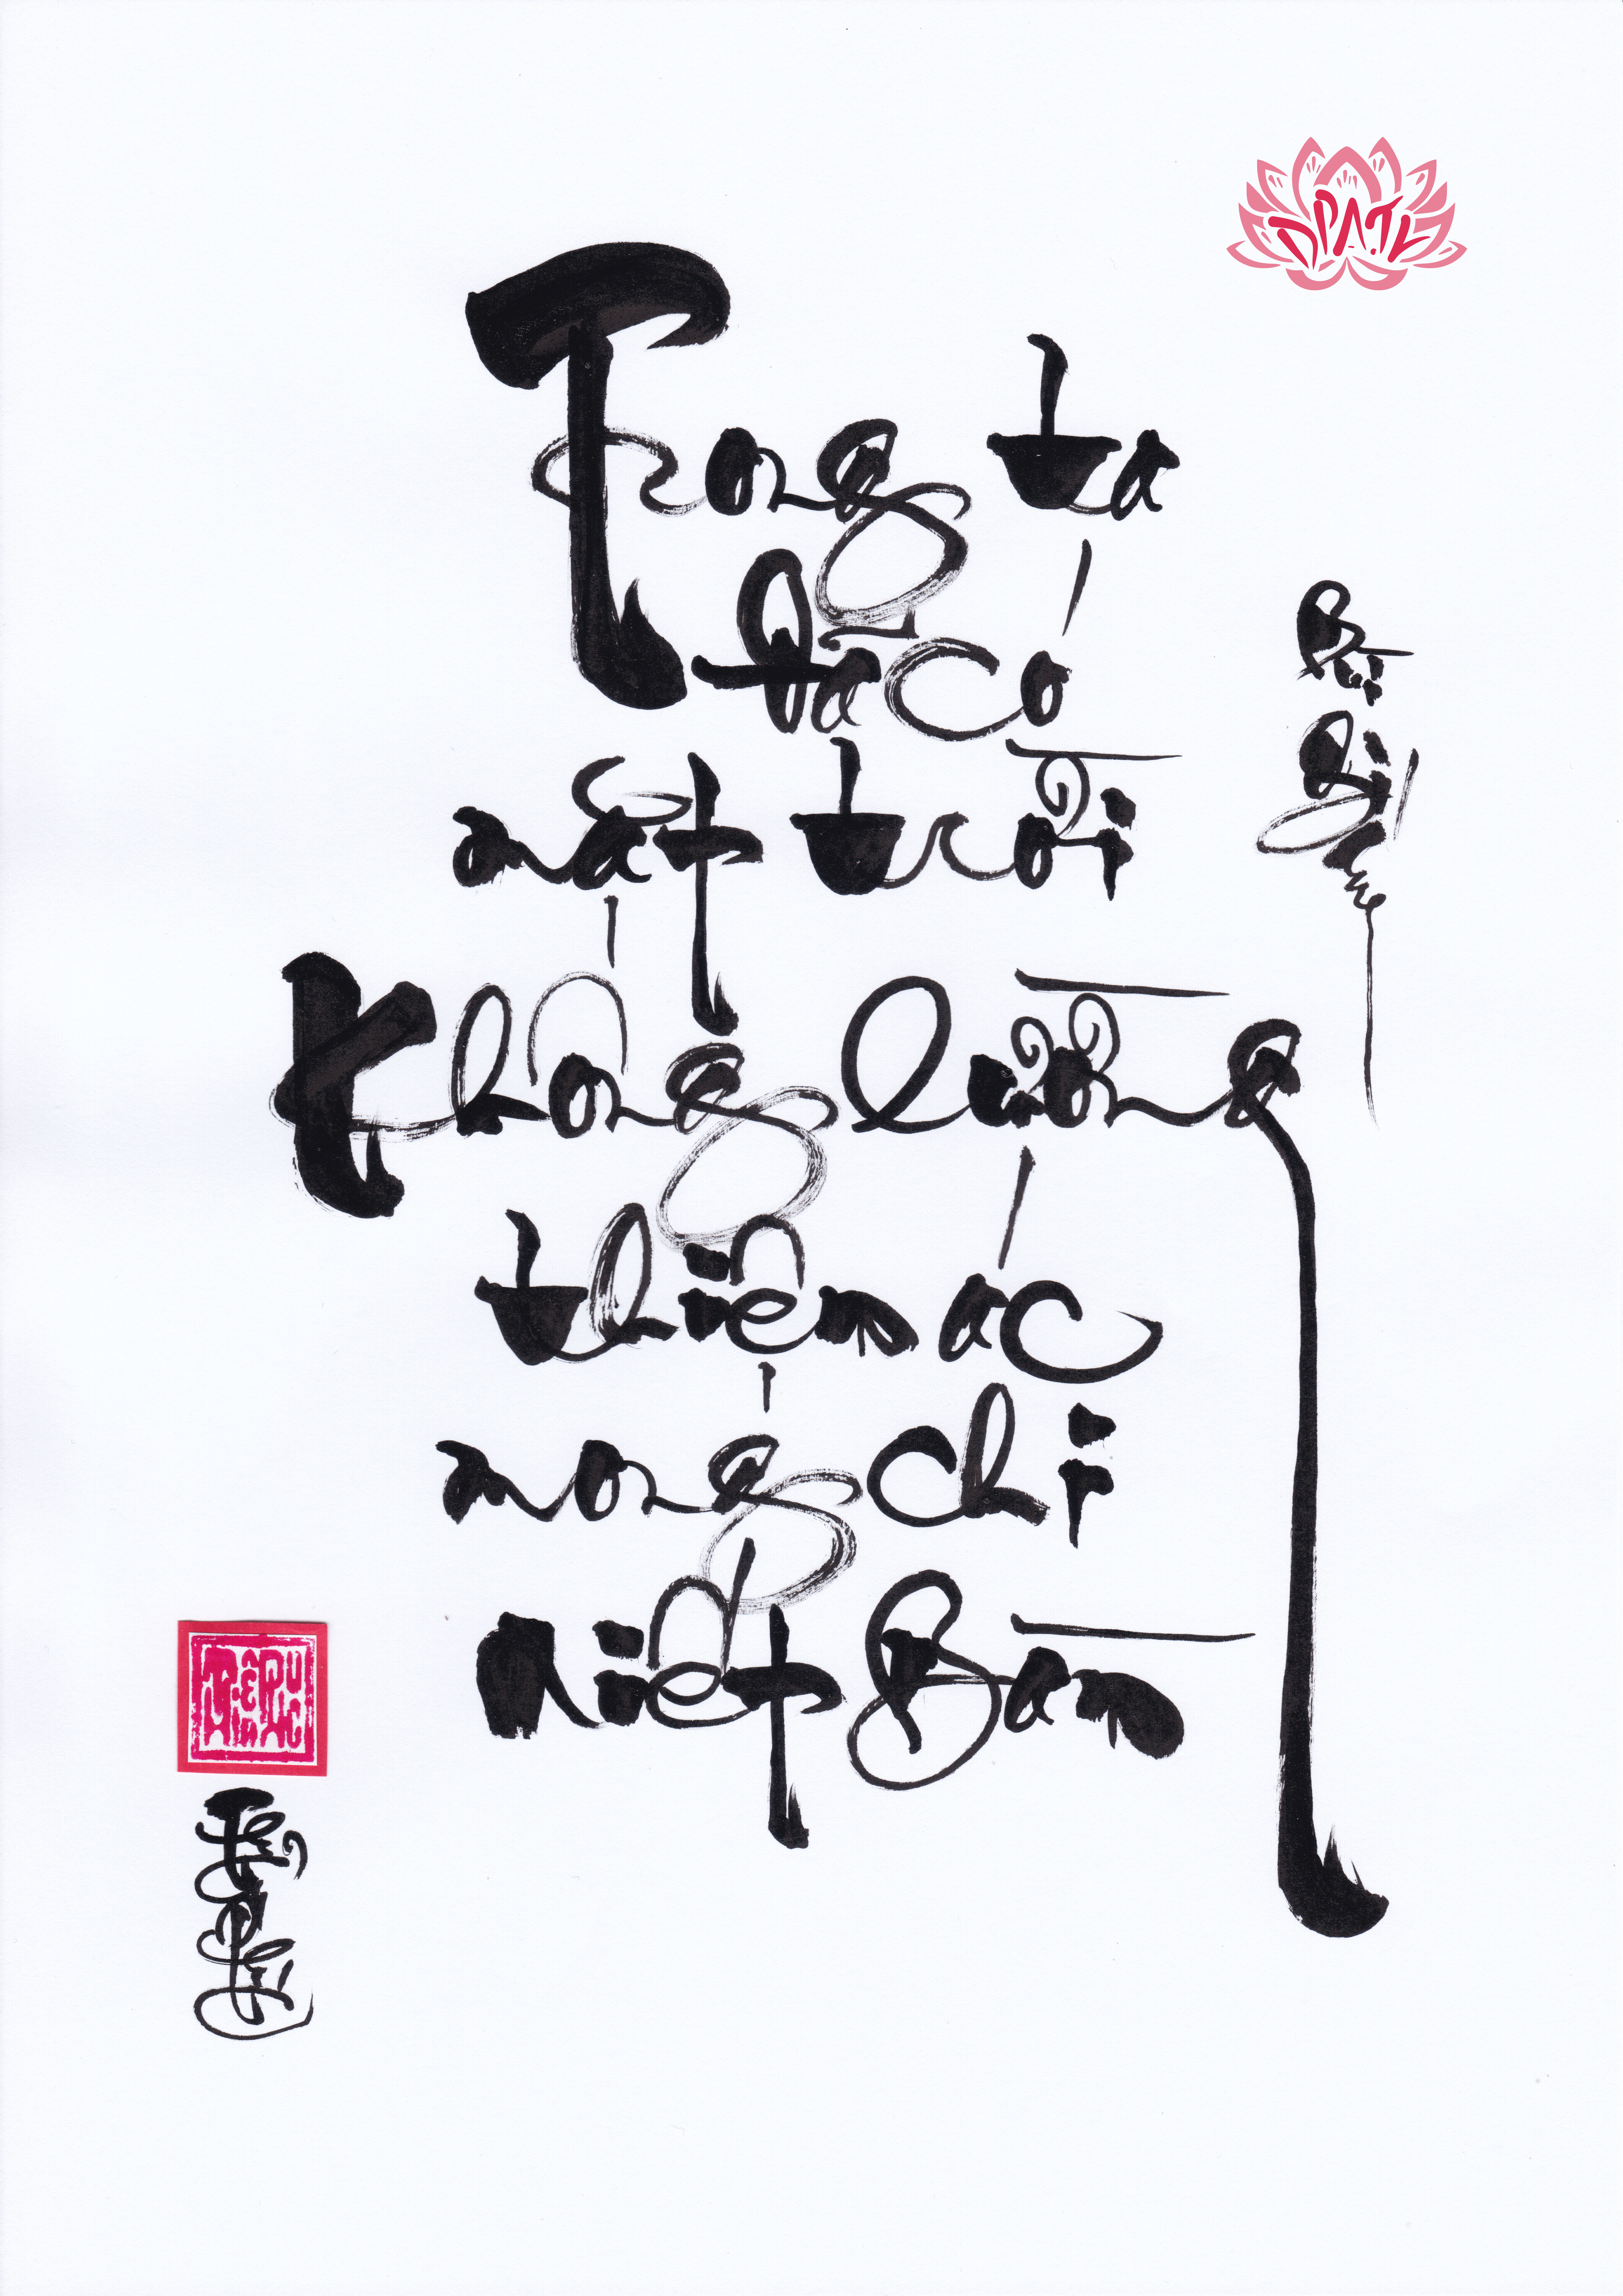 DPATL
Trong ta
đã có
mặt trời
Không lường
thiện ác
mong chi
Niết Bàn
Bùi
Giáng